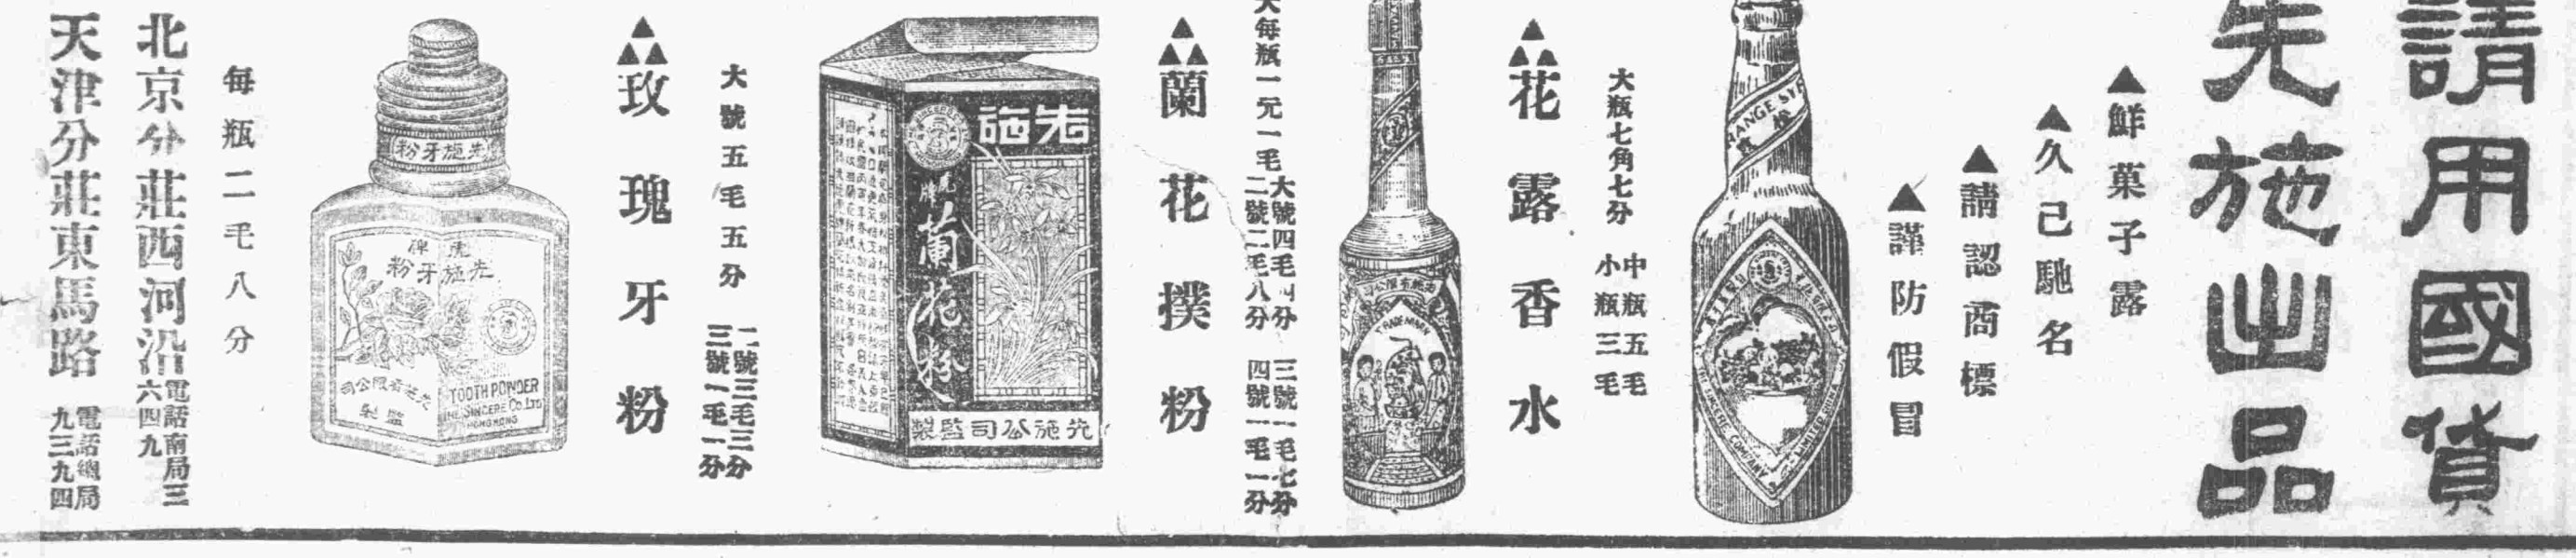 請用國貨
先施出品
▲鮮菓子露
▲久已馳名
▲請認商標
▲謹防假冒
ORANGE
THE SINCERE COMPANY LIMITED
大瓶七角七分
中瓶五毛
小瓶三毛
▲▲▲花露香水
先施有限公司
TRADE MARK
大每瓶一元一毛
大號四毛四分
二號二毛八分
三號一毛七分
四號一毛一分
▲▲▲蘭花撲粉
先施
虎牌
蘭花粉
先施公司監製
大號五毛五分
二號三毛三分
三號一毛一分
▲▲▲玫瑰牙粉
先施牙粉
虎牌
先施牙粉
先施有限公司
監製
TOOTH POWDER
THE SINCERE Co. LTD
HONGKONG
每瓶二毛八分
北京分莊西河沿
電話南局三
六四九
天津分莊東馬路
電話總局
九三九四